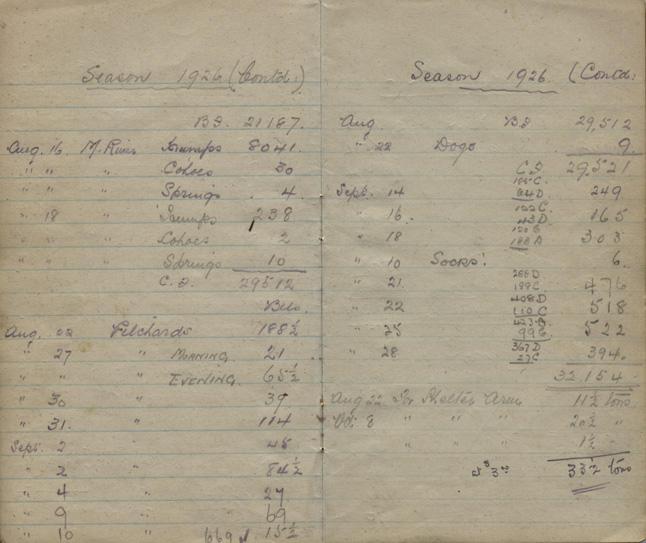 Season 1926 (Contd:)
B.F. 21187.
Aug. 16 M. River Humps 8041.
" " " Cohoes 30
" " " Springs 4.
" 18 " Humps 238
" " " Cohoes 2
" " " Springs 10
C.F. 29512
Bels.
Aug. Pilchards 188½
" 27 " MORNING 21
" EVENING. 65½
" 30 " 39
" 31. " 114
Sept. 2 " 48
" 2 " 84½
" 4 " 27
" 9 " 69
" 10 " 15½
Season 1926 (Contd:
Aug. B.F 29,512
" 22 Dogs 9.
C.F. 29,521
Sept. 14 249
" 16. 165
" 18 303
" 10 SOCKS. 6.
" 21. 476
" 22 110C 518
" 25 522
" 28 367D 27C 394.
32,154
Aug 22 Arm 11½ tons
Oct 8 " " " 20½ "
" " " 1½ "
33½ tons